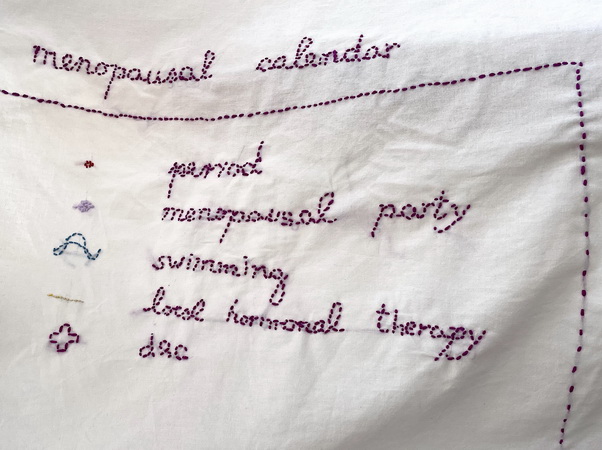 menopausal calendar
period
menopausal party
swimming
local hormonal therapy
d&c